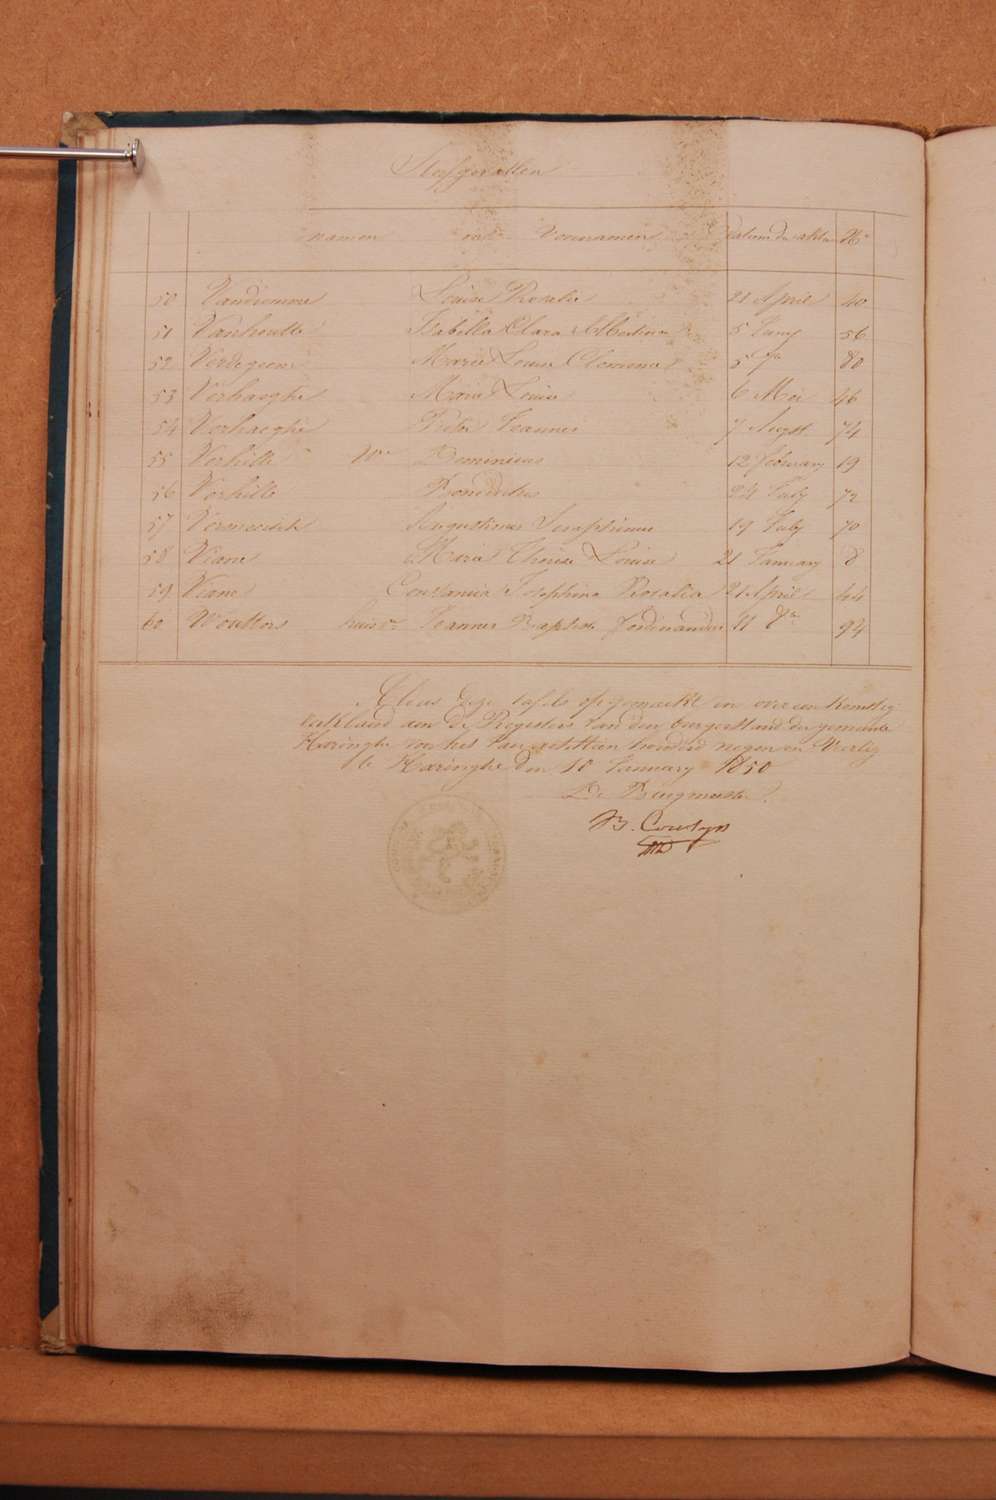 Sterfgevallen
namen en Voornamen Datum der akten N.o
50 Vandromme Louise Rosalie 21 April 40
51 Vanhoutte Isabella Clara 5 Juny 56
52 Marie Louise Clemence 5 7re 80
53 Verhaeghe Marie Louise 6 Mei 46
54 Verhaeghe Pieter Joannes 7 Augst 74
55 Verhille We Dominicus 12 February 19
56 Verhille Benedictus 24 July 72
57 Augustinus Seraphinus 19 July 70
58 Viane Marie Thérèse Louise 21 January 8
59 Viane Constancia Josephina Rosalia 21 April 44
60 Woutters huisv. Joannes Baptiste Ferdinandus 11 8re 94
Aldus deze tafels opgemaekt in overeenkomstig
verklaard aen de Registers van den burgerstand der gemeente
Haringhe voor het jaer achttien honderd negen en Veertig
te Haringhe den 10 January 1850
De Burgmeester.
B.